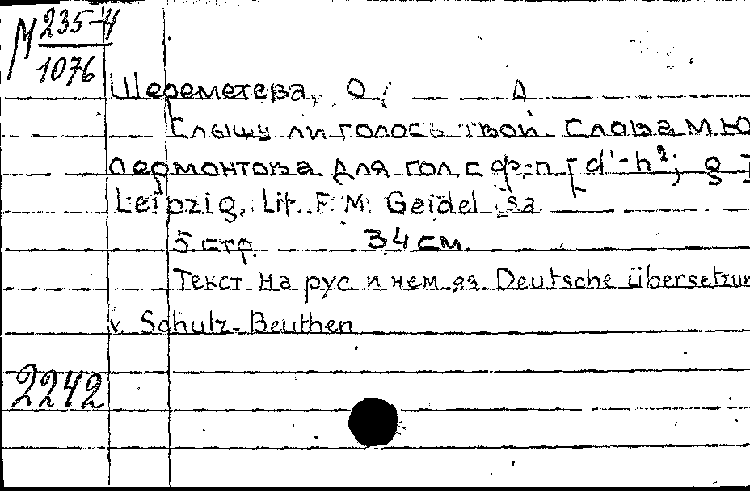 М 235-4
1076
Шереметева, О.
Слышу ли голосъ твой. Слова М Ю
Лермонтова Для гол. с ф-п [d'-h²; g
Leipzig, Lit. F. M. Geidel sa
5 стр. 34 см.
Текст на рус и нем яз. Deutsche übersetzun
v. Schulz-Beuthen
2242